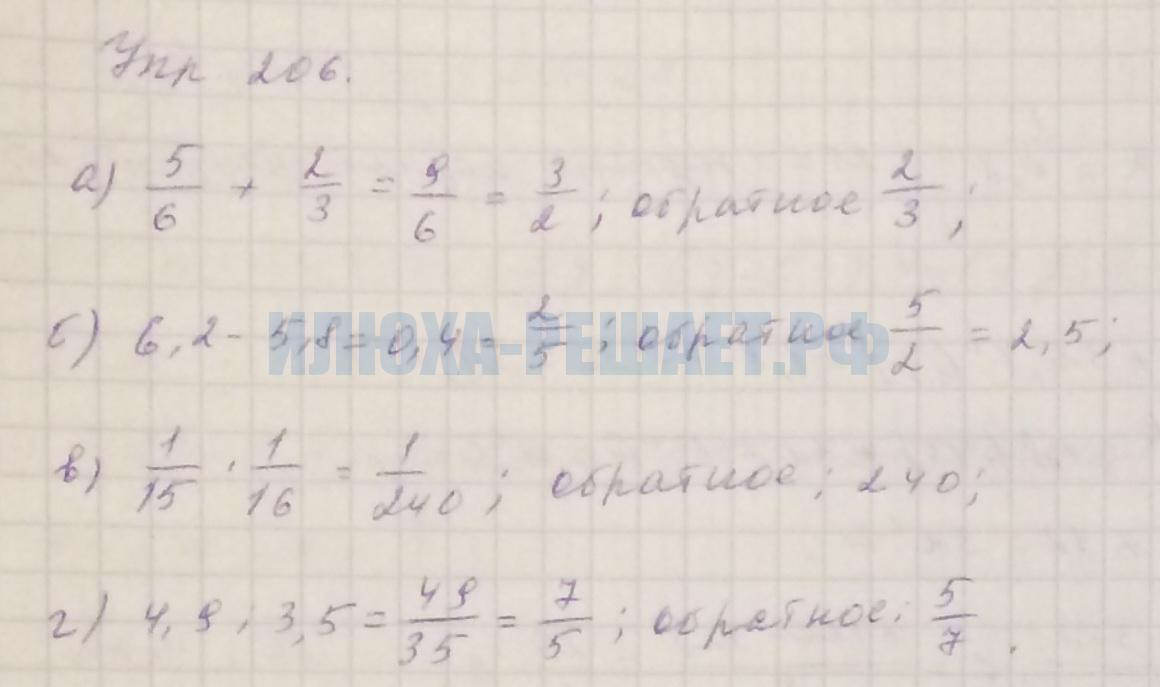 Упр 206.
а) 5/6 + 2/3 = 9/6 = 3/2 ; обратное 2/3 ;
б) 6,2 - 5,8 = 0,4 = 2/5 ; обратное 5/2 = 2,5 ;
ИЛЮХА-РЕШАЕТ.РФ
в) 1/15 · 1/16 = 1/240 ; обратное ; 240 ;
г) 4,9 : 3,5 = 49/35 = 7/5 ; обратное : 5/7 .